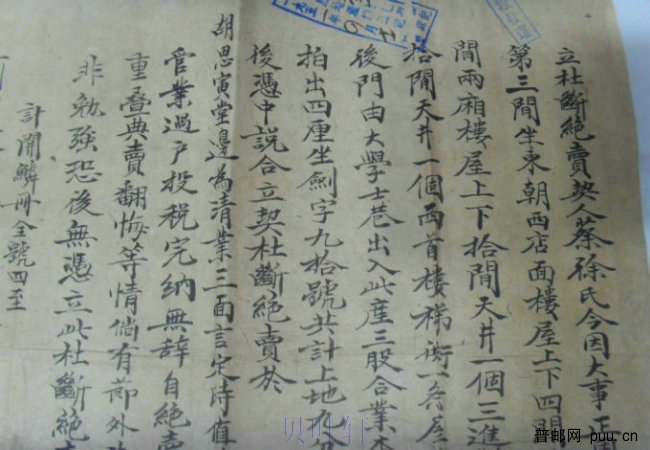 立杜斷絕賣契人蔡徐氏今因大事正
第三間坐東朝西店面樓屋上下四間
間兩廂樓屋上下拾間天井一個三進
拾間天井一個西首樓梯衖一條屋
後門由大學士巷出入此產三股合業
拍出四厘坐劍字九拾號共計上地九
後憑中説合立契杜斷絕賣於
胡思寅堂邊為清業三面言定時值
官業過户投税完納無辞自絕賣
重叠典賣翻悔等情倘有節外
非勉強恐後無憑立此杜斷絕
計開鱗冊全號四至
普邮网 puu.cn